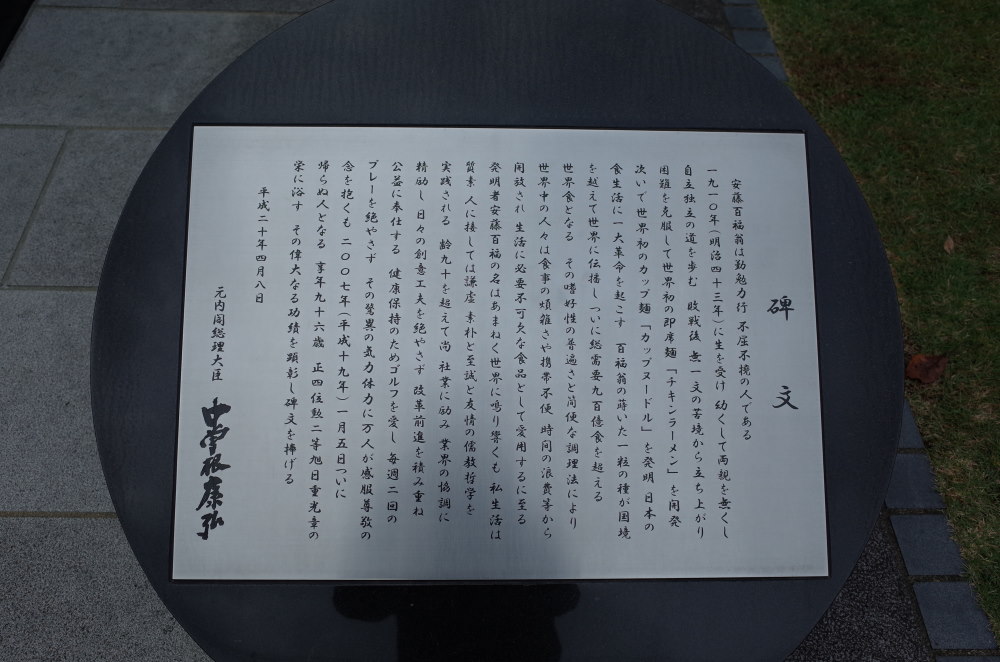 碑文
安藤百福翁は勤勉力行 不屈不撓の人である
一九一〇年(明治四十三年)に生を受け 幼くして両親を無くし
自立独立の道を歩む 敗戦後 無一文の苦境から立ち上がり
困難を克服して世界初の即席麺「チキンラーメン」を開発
次いで世界初のカップ麺「カップヌードル」を発明 日本の
食生活に一大革命を起こす 百福翁の蒔いた一粒の種が国境
を越えて世界に伝播し ついに総需要九百億食を超える
世界食となる その嗜好性の普遍さと簡便な調理法により
世界中の人々は食事の煩雑さや携帯不便 時間の浪費等から
開放され 生活に必要不可欠な食品として愛用するに至る
発明者安藤百福の名はあまねく世界に鳴り響くも 私生活は
質素 人に接しては謙虚 素朴と至誠と友情の儒教哲学を
実践される 齢九十を超えて尚 社業に励み 業界の協調に
精励し 日々の創意工夫を絶やさず 改革前進を積み重ね
公益に奉仕する 健康保持のためゴルフを愛し 毎週二回の
プレーを絶やさず その驚異の気力体力に万人が感服尊敬の
念を抱くも 二〇〇七年(平成十九年)一月五日ついに
帰らぬ人となる 享年九十六歳 正四位勲二等旭日重光章の
栄に浴す その偉大なる功績を顕彰し 碑文を捧げる
平成二十年四月八日
元内閣総理大臣 中曽根康弘